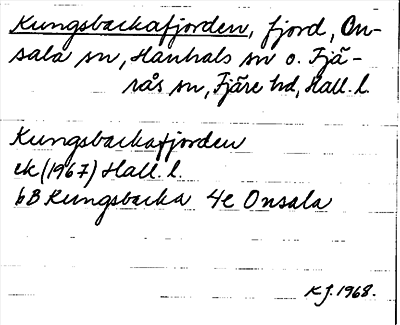 Kungsbackafjorden, fjord, On-
sala sn, Hanhals sn o. Fjä-
rås sn, Fjäre hd, Hall. l.
Kungsbackafjorden
ek (1967) Hall. l.
6B Kungsbacka 4e Onsala
K J. 1968.